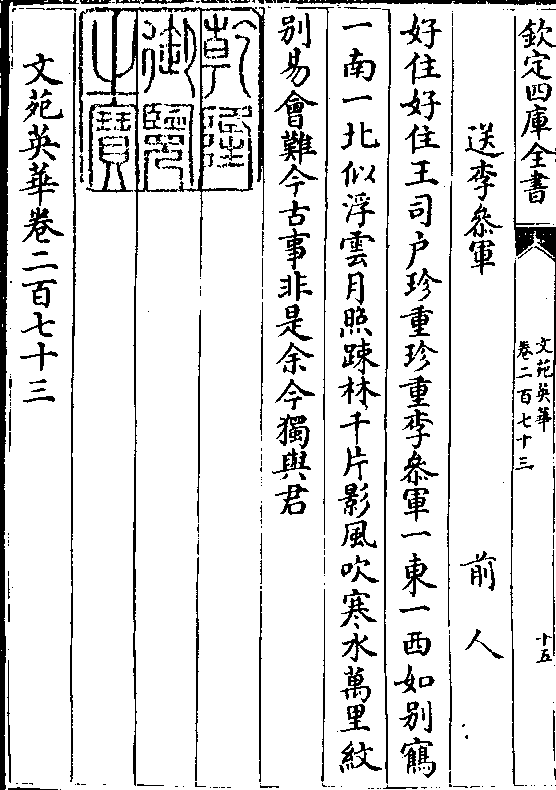 欽定四庫全書
文苑英華
卷二百七十三
十五
送李叅軍　前人
好住好住王司户珍重珍重李叅軍一東一西如别鶴
一南一北似浮雲月照踈林千片影風吹寒水萬里紋
别易會難今古事非是余今獨與君
乾隆
御覽
之寶
文苑英華卷二百七十三